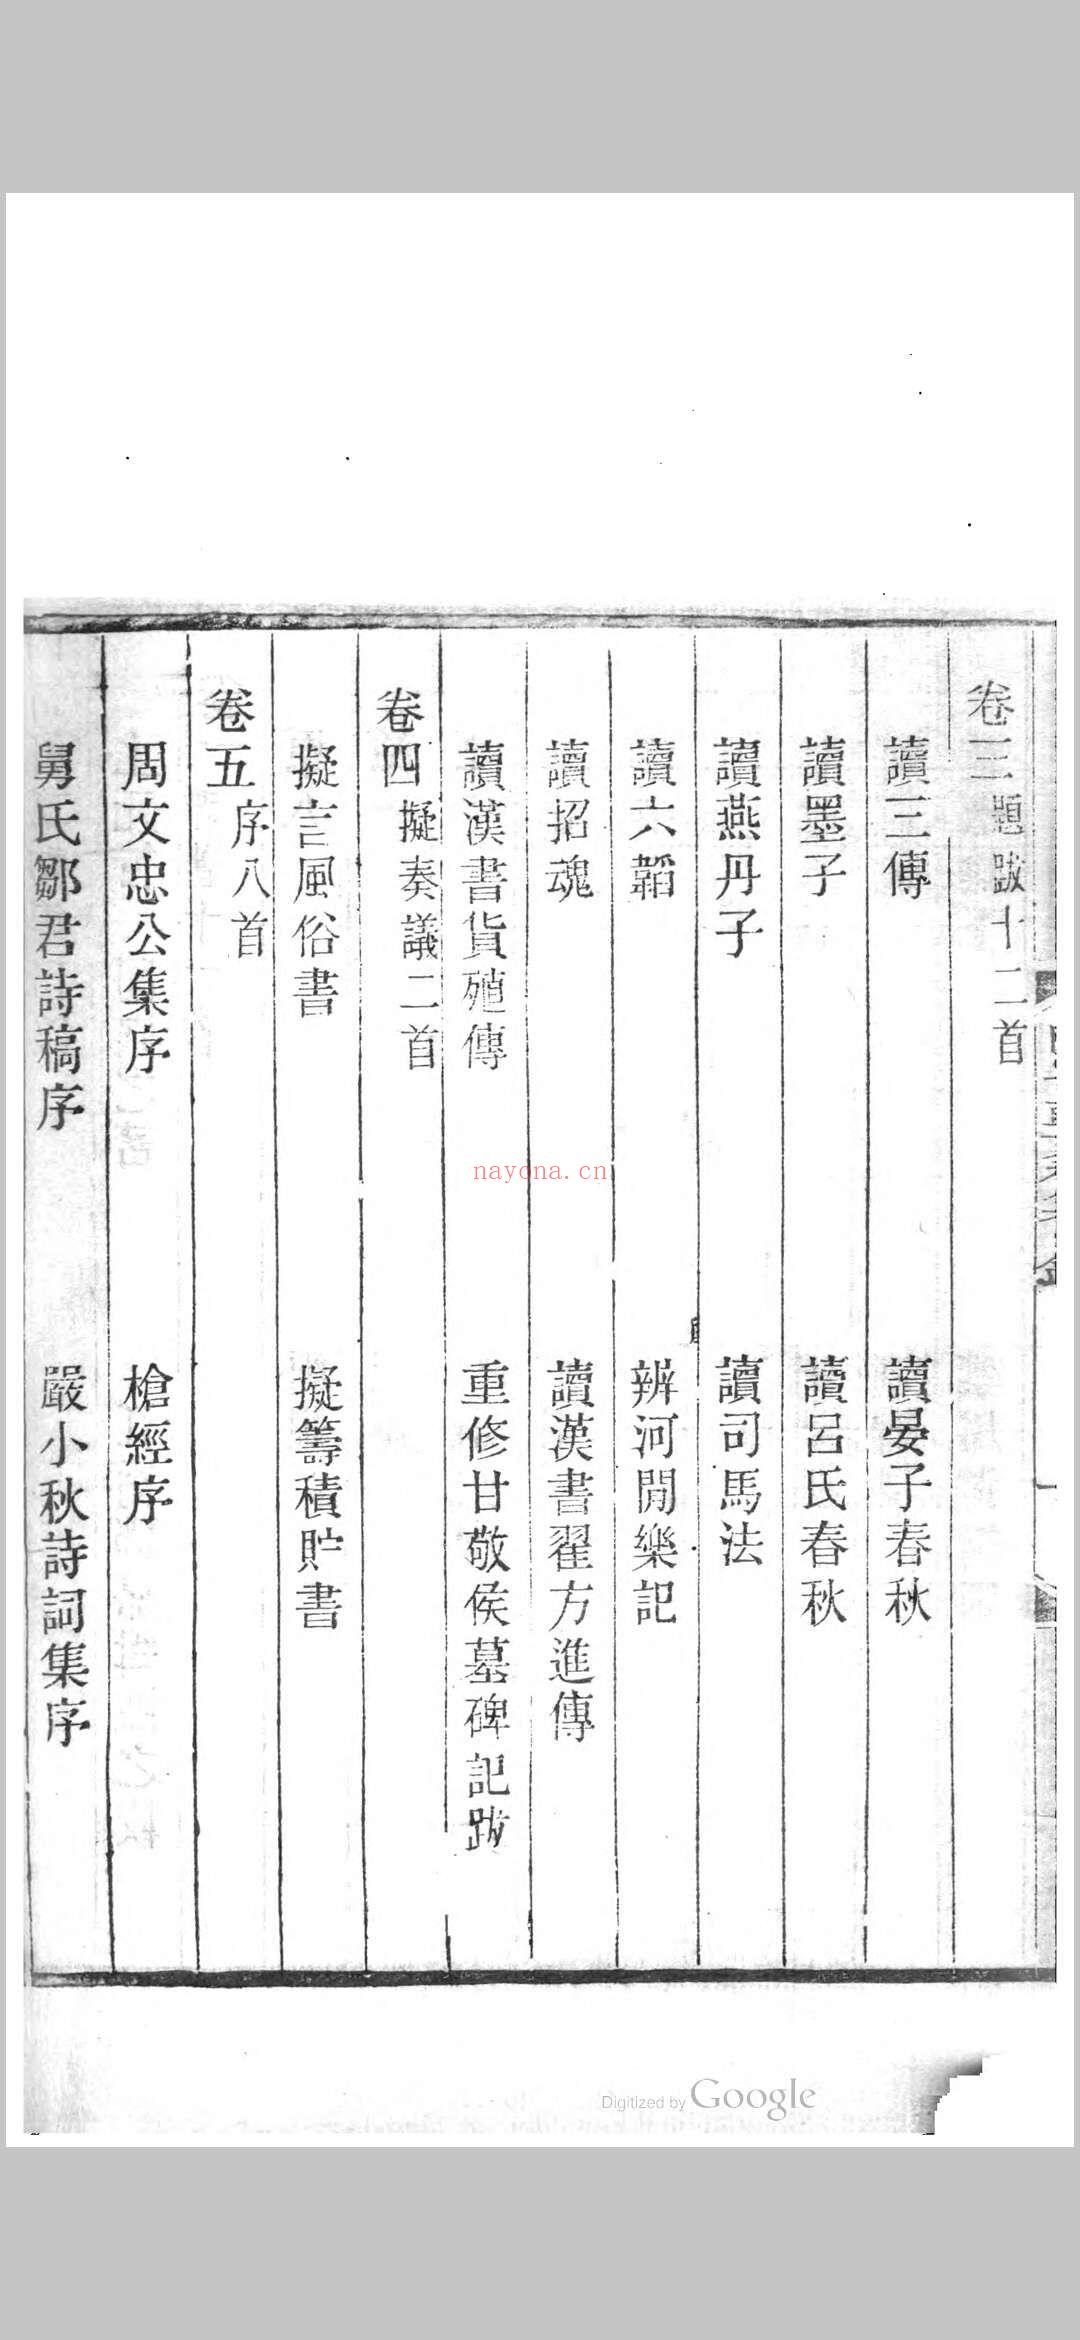 卷三題跋十二首
讀三傳　讀晏子春秋
讀墨子　讀呂氏春秋
讀燕丹子　讀司馬法
讀六韜　辨河閒樂記
讀招魂　讀漢書翟方進傳
讀漢書貨殖傳　重修甘敬侯墓碑記跋
卷四擬奏議二首
擬言風俗書　擬籌積貯書
卷五序八首
周文忠公集序　槍經序
舅氏鄒君詩稿序　嚴小秋詩詞集序
nayona.cn
Digitized by Google